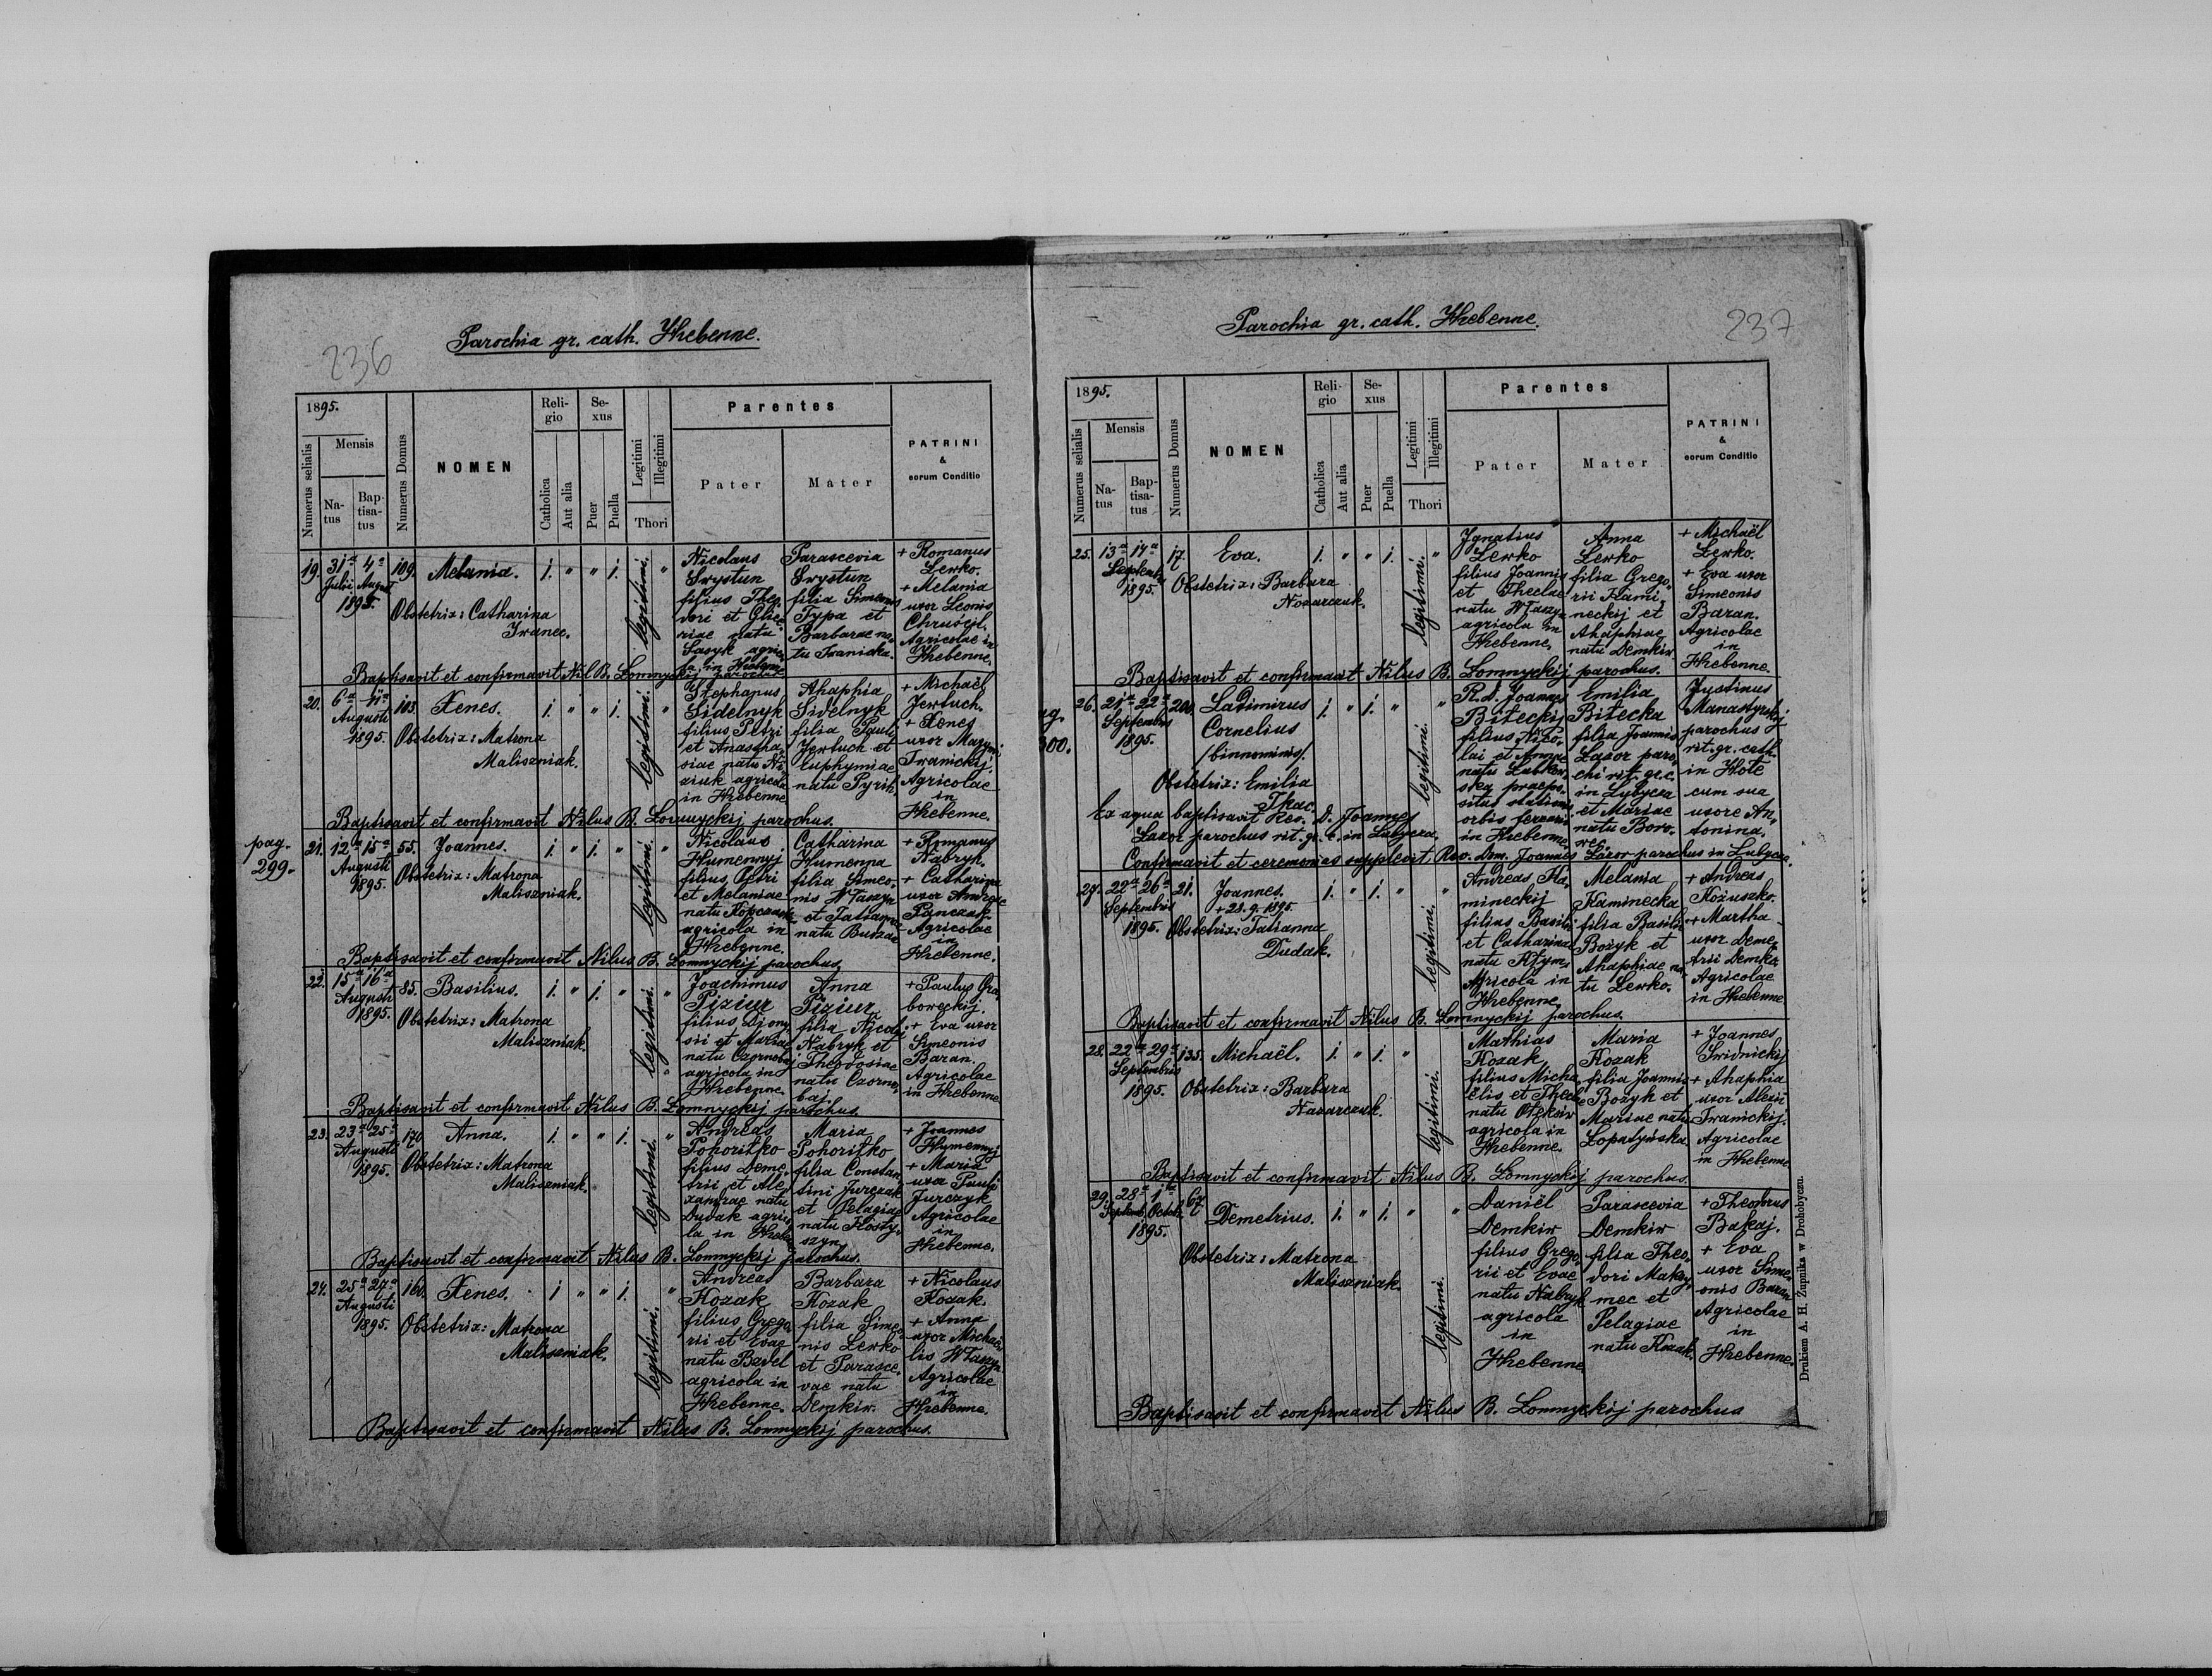 236
Parochia gr. cath. Hrebenne.
1895.
Numerus serialis
Mensis
Na-
tus
Bap-
tisa-
tus
Numerus Domus
NOMEN
Reli-
gio
Catholica
Aut alia
Se-
xus
Puer
Puella
Legitimi
Illegitimi
Thori
Parentes
Pater
Mater
PATRINI
&
eorum Conditio
19. 31a 4a 109. Melania. 1. " " 1. legitimi. "
Julii August
1895.
Obstetrix: Catharina
Iwanec.
Nicolaus
Srystun
filius Theo-
dori et Glice-
riae natu
Sasyk agrico-
la in Hrebenne
Parascevia
Srystun
filia Simeonis
Typa et
Barbarae na-
tu Iwanicka.
+ Romanus
Lewko.
+ Melania
uxor Leonis
Chruscil.
Agricolae in
Hrebenne.
Baptisavit et confirmavit Nil B. Lomnyckij parochus
20. 6a 11a 103. Xenes. 1. " " 1. legitimi. "
Augusti
1895.
Obstetrix: Matrona
Maliszniak.
Stephanus
Sidelnyk
filius Petri
et Anastha-
siae natu
agricola
in Hrebenne
Ahaphia
Sidelnyk
filia Pauli
Jertuch et
Euphymiae
natu Pyrih.
+ Michaël
Jertuch.
+ Xenes
uxor Maxymi
Iwanickij.
Agricolae
in
Hrebenne.
Baptisavit et confirmavit Nilus B. Lomnyckij parochus.
pag.
299.
21. 12a 15a 55. Joannes. 1. " 1. " legitimi "
Augusti
1895.
Obstetrix: Matrona
Maliszniak.
Nicolaus
Humennyj
filius Petri
et Melaniae
natu Kopczak
agricola in
Hrebenne.
Catharina
Humenna
filia Simeo-
nis Wlaszyn
et Tatianae
natu
+ Romanus
Nabryk.
+ Catharina
uxor Andreae
Panczak.
Agricolae
in
Hrebenne.
Baptisavit et confirmavit Nilus B. Lomnyckij parochus.
22. 15a 16a 85. Basilius. 1. " 1. " legitimi. "
Augusti
1895.
Obstetrix: Matrona
Maliszniak.
Joachimus
Piziur
filius Diony-
sii et Mariae
natu Czornobaj
agricola in
Hrebenne.
Anna
Piziur
filia Nicolai
Nabryk et
Theodosiae
natu Czorno-
baj.
+ Paulus Gra-
boreckij.
+ Eva uxor
Simeonis
Baran.
Agricolae
in Hrebenne
Baptisavit et confirmavit Nilus B. Lomnyckij parochus.
23. 23a 25a 170 Anna. 1. " " 1. legitimi. "
Augusti
1895.
Obstetrix: Matrona
Maliszniak.
Andreas
Pohoritko
filius Deme-
trii et Ale-
xandrae natu
Dudak agrico-
la in Hreben.
Maria
Pohoritko
filia Constan-
tini Jurczak
et Pelagiae
natu Kosty-
szyn.
+ Joannes
Hymennyj
+ Maria
uxor Pauli
Jurczyk
Agricolae
in
Hrebenne.
Baptisavit et confirmavit Nilus B. Lomnyckij parochus.
24. 25a 27a 160. Xenes. 1 " " 1. legitimi. "
Augusti
1895.
Obstetrix: Matrona
Maliszniak.
Andreas
Kozak
filius Grego-
rii et Evae
natu Bavel
agricola in
Hrebenne.
Barbara
Kozak
filia Sime-
nis Lewko
et Parasce-
vae natu
Demkiw.
+ Nicolaus
Kozak.
+ Anna
uxor Michaë-
lis Wlaszyn
Agricolae
in
Hrebenne.
Baptisavit et confirmavit Nilus B. Lomnyckij parochus.
237
Parochia gr. cath. Hrebenne.
1895.
Numerus serialis
Mensis
Na-
tus
Bap-
tisa-
tus
Numerus Domus
NOMEN
Reli-
gio
Catholica
Aut alia
Se-
xus
Puer
Puella
Legitimi
Illegitimi
Thori
Parentes
Pater
Mater
PATRINI
&
eorum Conditio
25. 13a 14a 17. Eva. 1. " " 1. legitimi. "
Septembr
1895.
Obstetrix: Barbara
Nazarczuk.
Ignatius
Lewko
filius Joannis
et Theclae
natu Wlaszyn
agricola in
Hrebenne.
Anna
Lewko
filia Grego-
rii Kami-
neckij et
Ahaphiae
natu Demkiw
+ Michaël
Lewko.
+ Eva uxor
Simeonis
Baran.
Agricolae
in
Hrebenne.
Baptisavit et confirmavit Nilus B. Lomnyckij parochus.
300.
26. 21a 22a 200. Ladimirus 1. " 1. " legitimi. "
Septembris
1895.
Cornelius
/binnominis/.
Obstetrix: Emilia
Tkac.
R. d. Joannes
Bileckij
filius Nico-
lai et Annae
natu
praepo-
situs stationis
orbis ferrariae
in Hrebenne.
Emilia
Bilecka
filia Joannis
Lazor paro-
chi rit. gr. c.
in Lubycza
et Mariae
natu Boro-
wec
Justinus
Manastyrskij
parochus
rit. gr. cath.
in Hole
cum sua
uxore An-
tonina.
Ex aqua baptisavit Rev. D. Joannes
Lazor parochus rit. gr. c. in Lubycza.
Confirmavit et ceremonias supplevit Rev. Dom. Joannes Lazor parochus in Lubycza.
27. 22a 26a 21. Joannes. 1. " 1. " legitimi. "
Septembris
1895.
+ 28. 9. 1895.
Obstetrix: Tatianna
Dudak.
Andreas Ka-
mineckij
filius Basilii
et Catharinae
natu Klym.
Agricola in
Hrebenne.
Melania
Kaminecka
filia Basilii
Bozyk et
Ahaphiae na-
tu Lewko.
+ Andreas
Kozuszko.
+ Martha
uxor Deme-
trii Demko
Agricolae
in Hrebenne
Baptisavit et confirmavit Nilus B. Lomnyckij parochus.
28. 22a 29a 135. Michaël. 1. " 1. " legitimi.
Septembris
1895.
Obstetrix: Barbara
Nazarczuk.
Mathias
Kozak
filius Micha-
ëlis et Theclae
natu Oleksiw
agricola in
Hrebenne.
Maria
Kozak
filia Joannis
Bozyk et
Mariae natu
Lopatynska.
+ Joannes
Swidnickij
+ Ahaphia
uxor Alexii
Iwanickij.
Agricolae
in Hrebenne
Baptisavit et confirmavit Nilus B. Lomnyckij parochus.
29. 28a 1a 67 Demetrius. 1. " 1. " legitimi. "
Septemb. Octob.
1895.
Obstetrix: Matrona
Maliszniak.
Daniël
Demkiw
filius Grego-
rii et Evae
natu Nabryk
agricola
in
Hrebenne
Parascevia
Demkiw
filia Theo-
dori Maksy-
mec et
Pelagiae
natu Kozak.
+ Theodorus
Bakaj.
+ Eva
uxor Sime-
onis Baran
Agricolae
in
Hrebenne.
Baptisavit et confirmavit Nilus B. Lomnyckij parochus
Drukiem A. H. Żupnika w Drohobyczu.